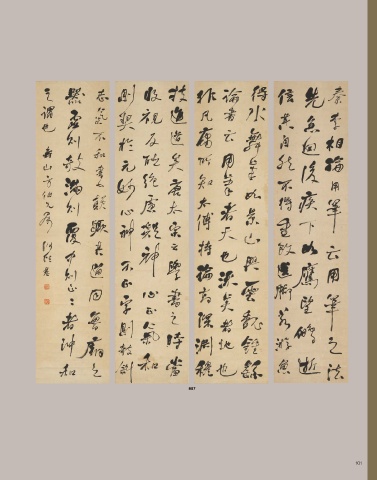 秦李相論用筆云用筆之法
先急回後疾下如鷹望鵬逝
信其自然不得重改送脚若游魚
得水舞筆如景山興雲鍾繇
論書云用筆者天也流美者地也
非凡庸所知太傅特論深測
技進道矣唐太宗云學書之時當
收視反聽絕慮凝神心正氣和
則契於元妙心神不正字則欹斜
志氣不和書必顛蹶其道同魯廟之
器虛則欹滿則覆中則正正者沖和
之謂也 壽山方伯
807